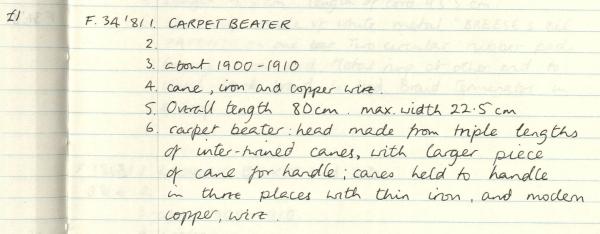 £1 F. 34 '81 1. CARPET BEATER
2.
3. about 1900-1910
4. cane, iron and copper wire.
5. Overall length 80cm. max. width 22.5cm
6. carpet beater: head made from triple lengths
of inter-twined canes, with larger piece
of cane for handle; canes held to handle
in three places with thin iron, and modern
copper, wire.